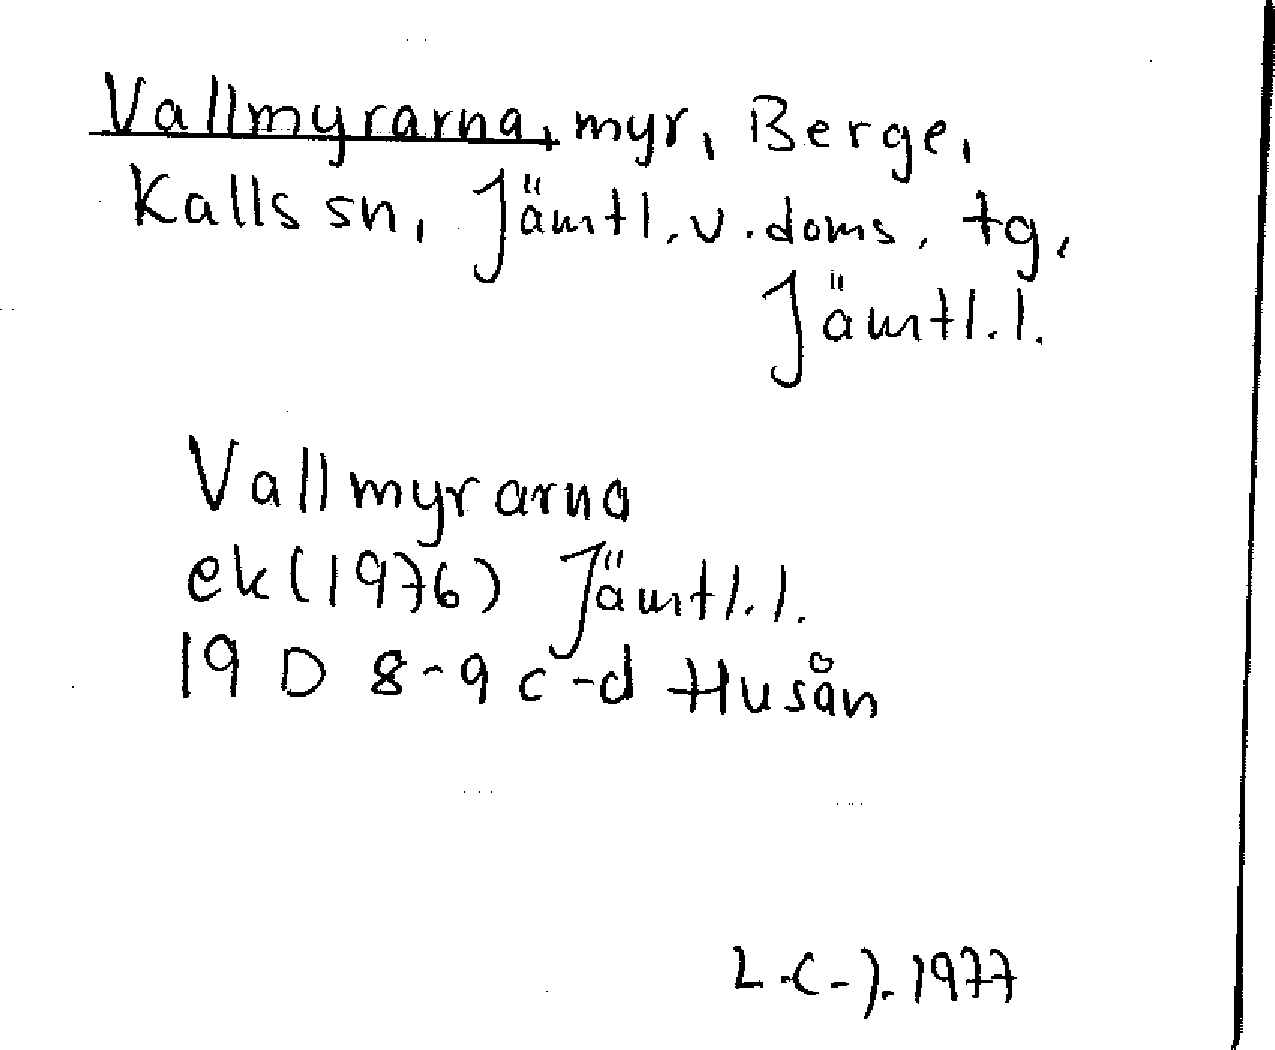 Vallmyrarna, myr, Berge,
Kalls sn, Jämtl. v. doms. tg,
Jämtl. l.
Vallmyrarna
ek (1976) Jämtl. l.
19 D 8-9 c-d Husån
1977